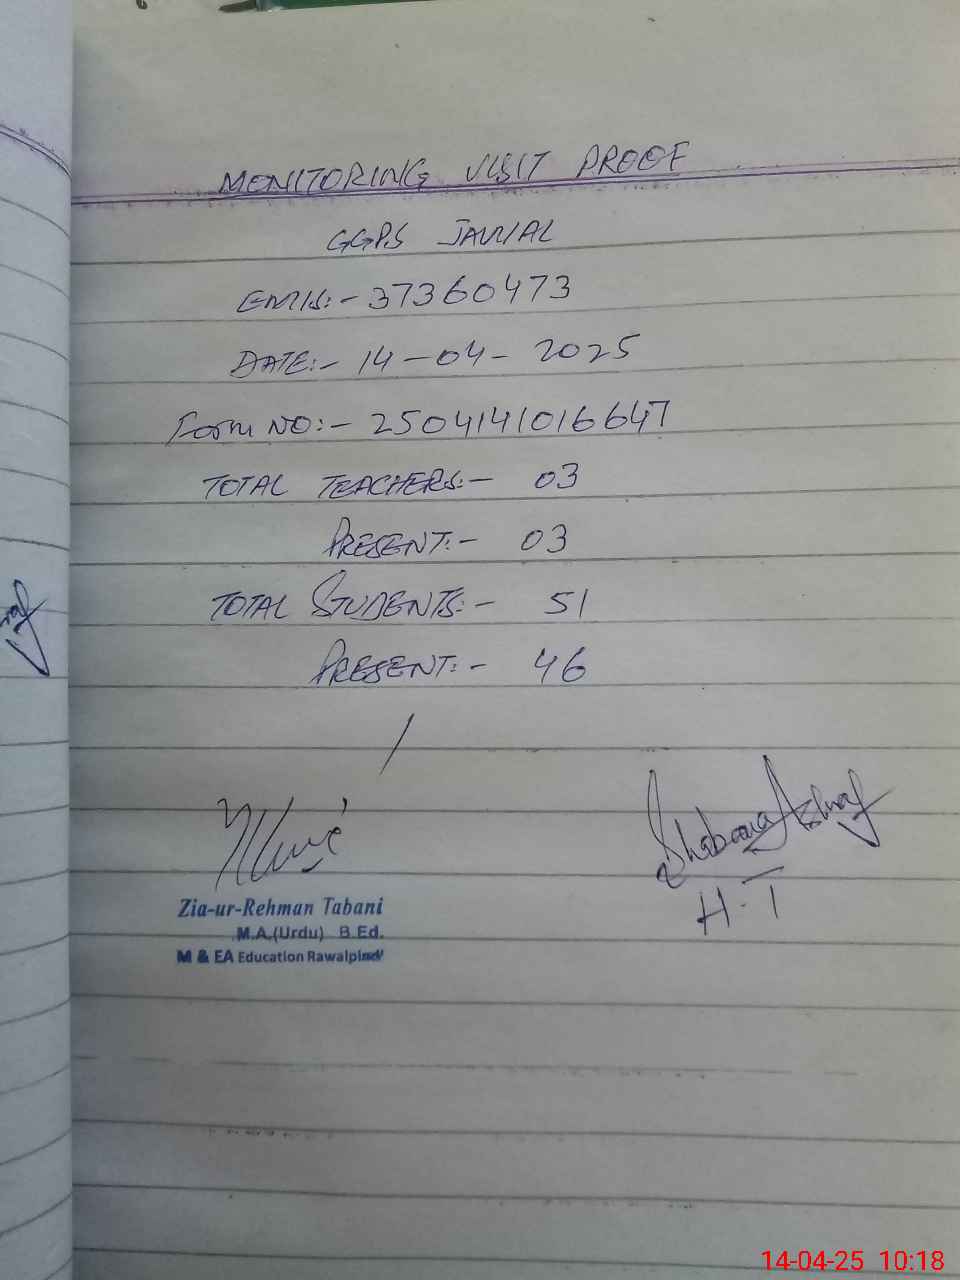 MONITORING VISIT PROOF
GGPS JAWAL
EMIS:- 37360473
DATE:- 14-04-2025
Form NO:- 2504141016647
TOTAL TEACHERS:- 03
PRESENT:- 03
TOTAL STUDENTS:- 51
PRESENT:- 46
Shabana Ashraf
H.T
Zia-ur-Rehman Tabani
M.A.(Urdu) B.Ed.
M & EA Education Rawalpindi
14-04-25 10:18